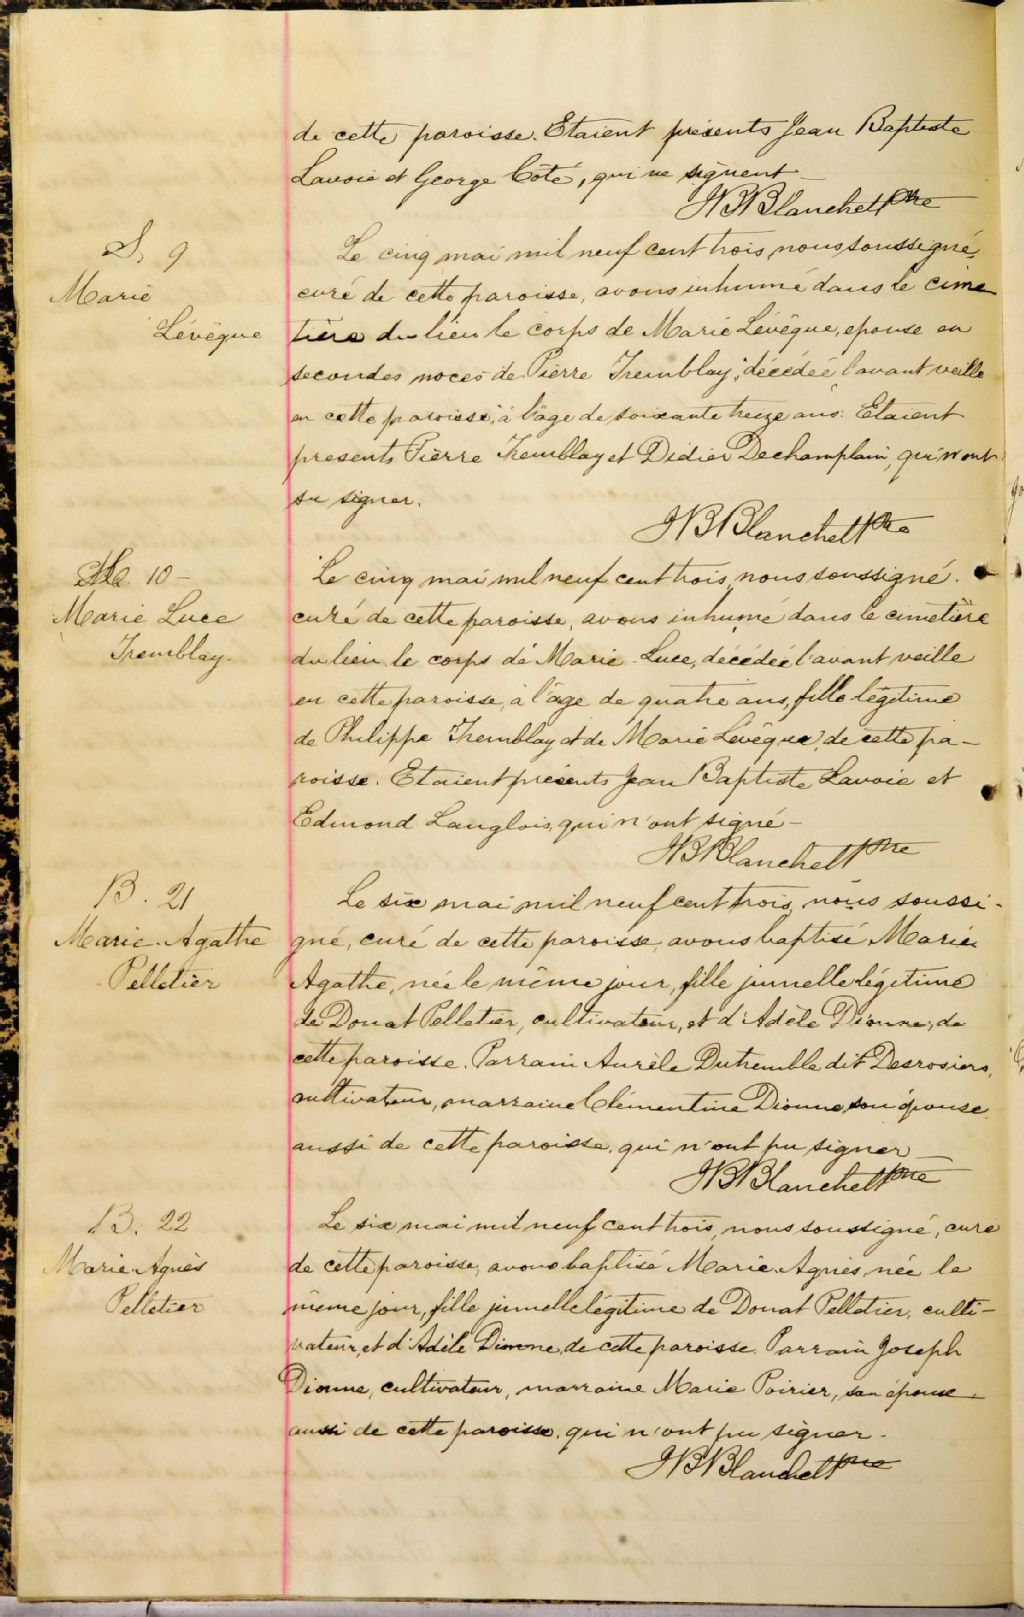 de cette paroisse. Etaient présents Jean Baptiste
Lavoie et George Côté, qui ne signent
JBBlanchett Ptre
S. 9
Marie
Lévêque
Le cinq mai mil neuf cent trois, nous soussigné,
curé de cette paroisse, avons inhumé dans le cime
tière du lieu le corps de Marie Lévêque, epouse en
secondes noces de Pierre Tremblay, décédée l'avant veille
en cette paroisse, à l'âge de soixante treize ans. Etaient
presents Pierre Tremblay et Didier Dechamplain, qui n'ont
su signer.
JBBlanchett Ptre
10 -
Marie Luce
Tremblay.
Le cinq mai mil neuf cent trois, nous soussigné.
curé de cette paroisse, avons inhumé dans le cimetière
du lieu le corps de Marie-Luce, décédée l'avant veille
en cette paroisse, à l'âge de quatre ans, fille légitime
de Philippe Tremblay et de Marie Lévêque, de cette pa-
roisse. Etaient présents Jean Baptiste Lavoie et
Edmond Langlois, qui n'ont signé -
JBBlanchett Ptre
B. 21
Marie-Agathe
Pelletier
Le six mai mil neuf cent trois, nous soussi-
gné, curé de cette paroisse, avons baptisé Marie
Agathe, née le même jour, fille jumelle légitime
de Donat Pelletier, cultivateur, et d'Adèle Dionne, de
cette paroisse. Parrain Aurèle Dutremble dit Desrosiers,
cultivateur, marraine Clémentine Dionne son épouse
aussi de cette paroisse, qui n'ont pu signer
JBBlanchett Ptre
B. 22
Marie-Agnès
Pelletier
Le six mai mil neuf cent trois, nous soussigné, curé
de cette paroisse, avons baptisé Marie-Agnès, née le
même jour, fille jumelle légitime de Donat Pelletier, culti-
vateur, et d'Adèle Dionne, de cette paroisse. Parrain Joseph
Dionne, cultivateur, marraine Marie Poirier, son épouse
aussi de cette paroisse, qui n'ont pu signer.
JBBlanchett Ptre